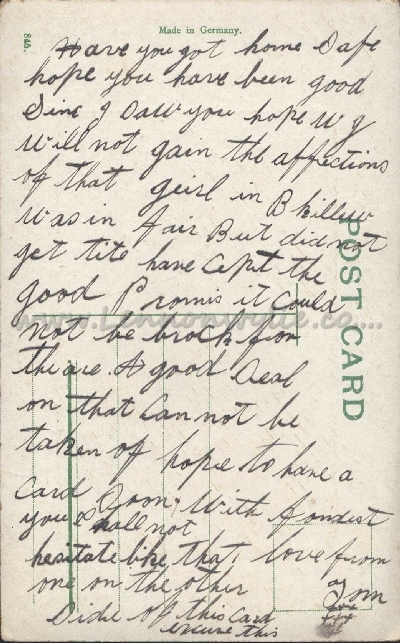 Made in Germany.
846.
POST CARD
Have you got home Safe
hope you have been good
Sinc I Saw you hope W J
Will not gain the affections
of that geirl in B killew
Was in fair But did not
get tite have cept the
good Promis it Could
not be brock from
the are A good Deal
on that Can not be
taken of hope to have a
Card from With fondest
you & Shall not
hesitate like that love from
one on the other Tom
Sidie of this Card xxx
excuse this xxx